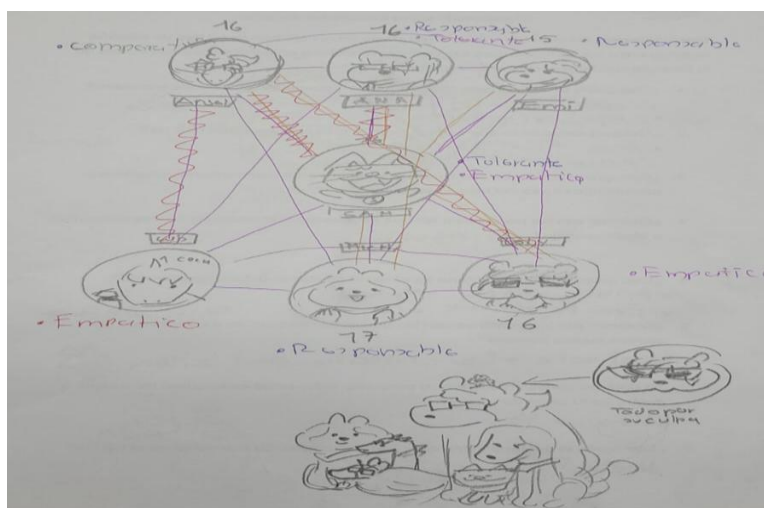 16
16
• Responsable
• Tolerante
15
• Responsable
ANA
Emi
• Tolerante
• Empatico
SAM
• Empatico
• Empatico
17
16
• Responsable
Todo por
su culpa